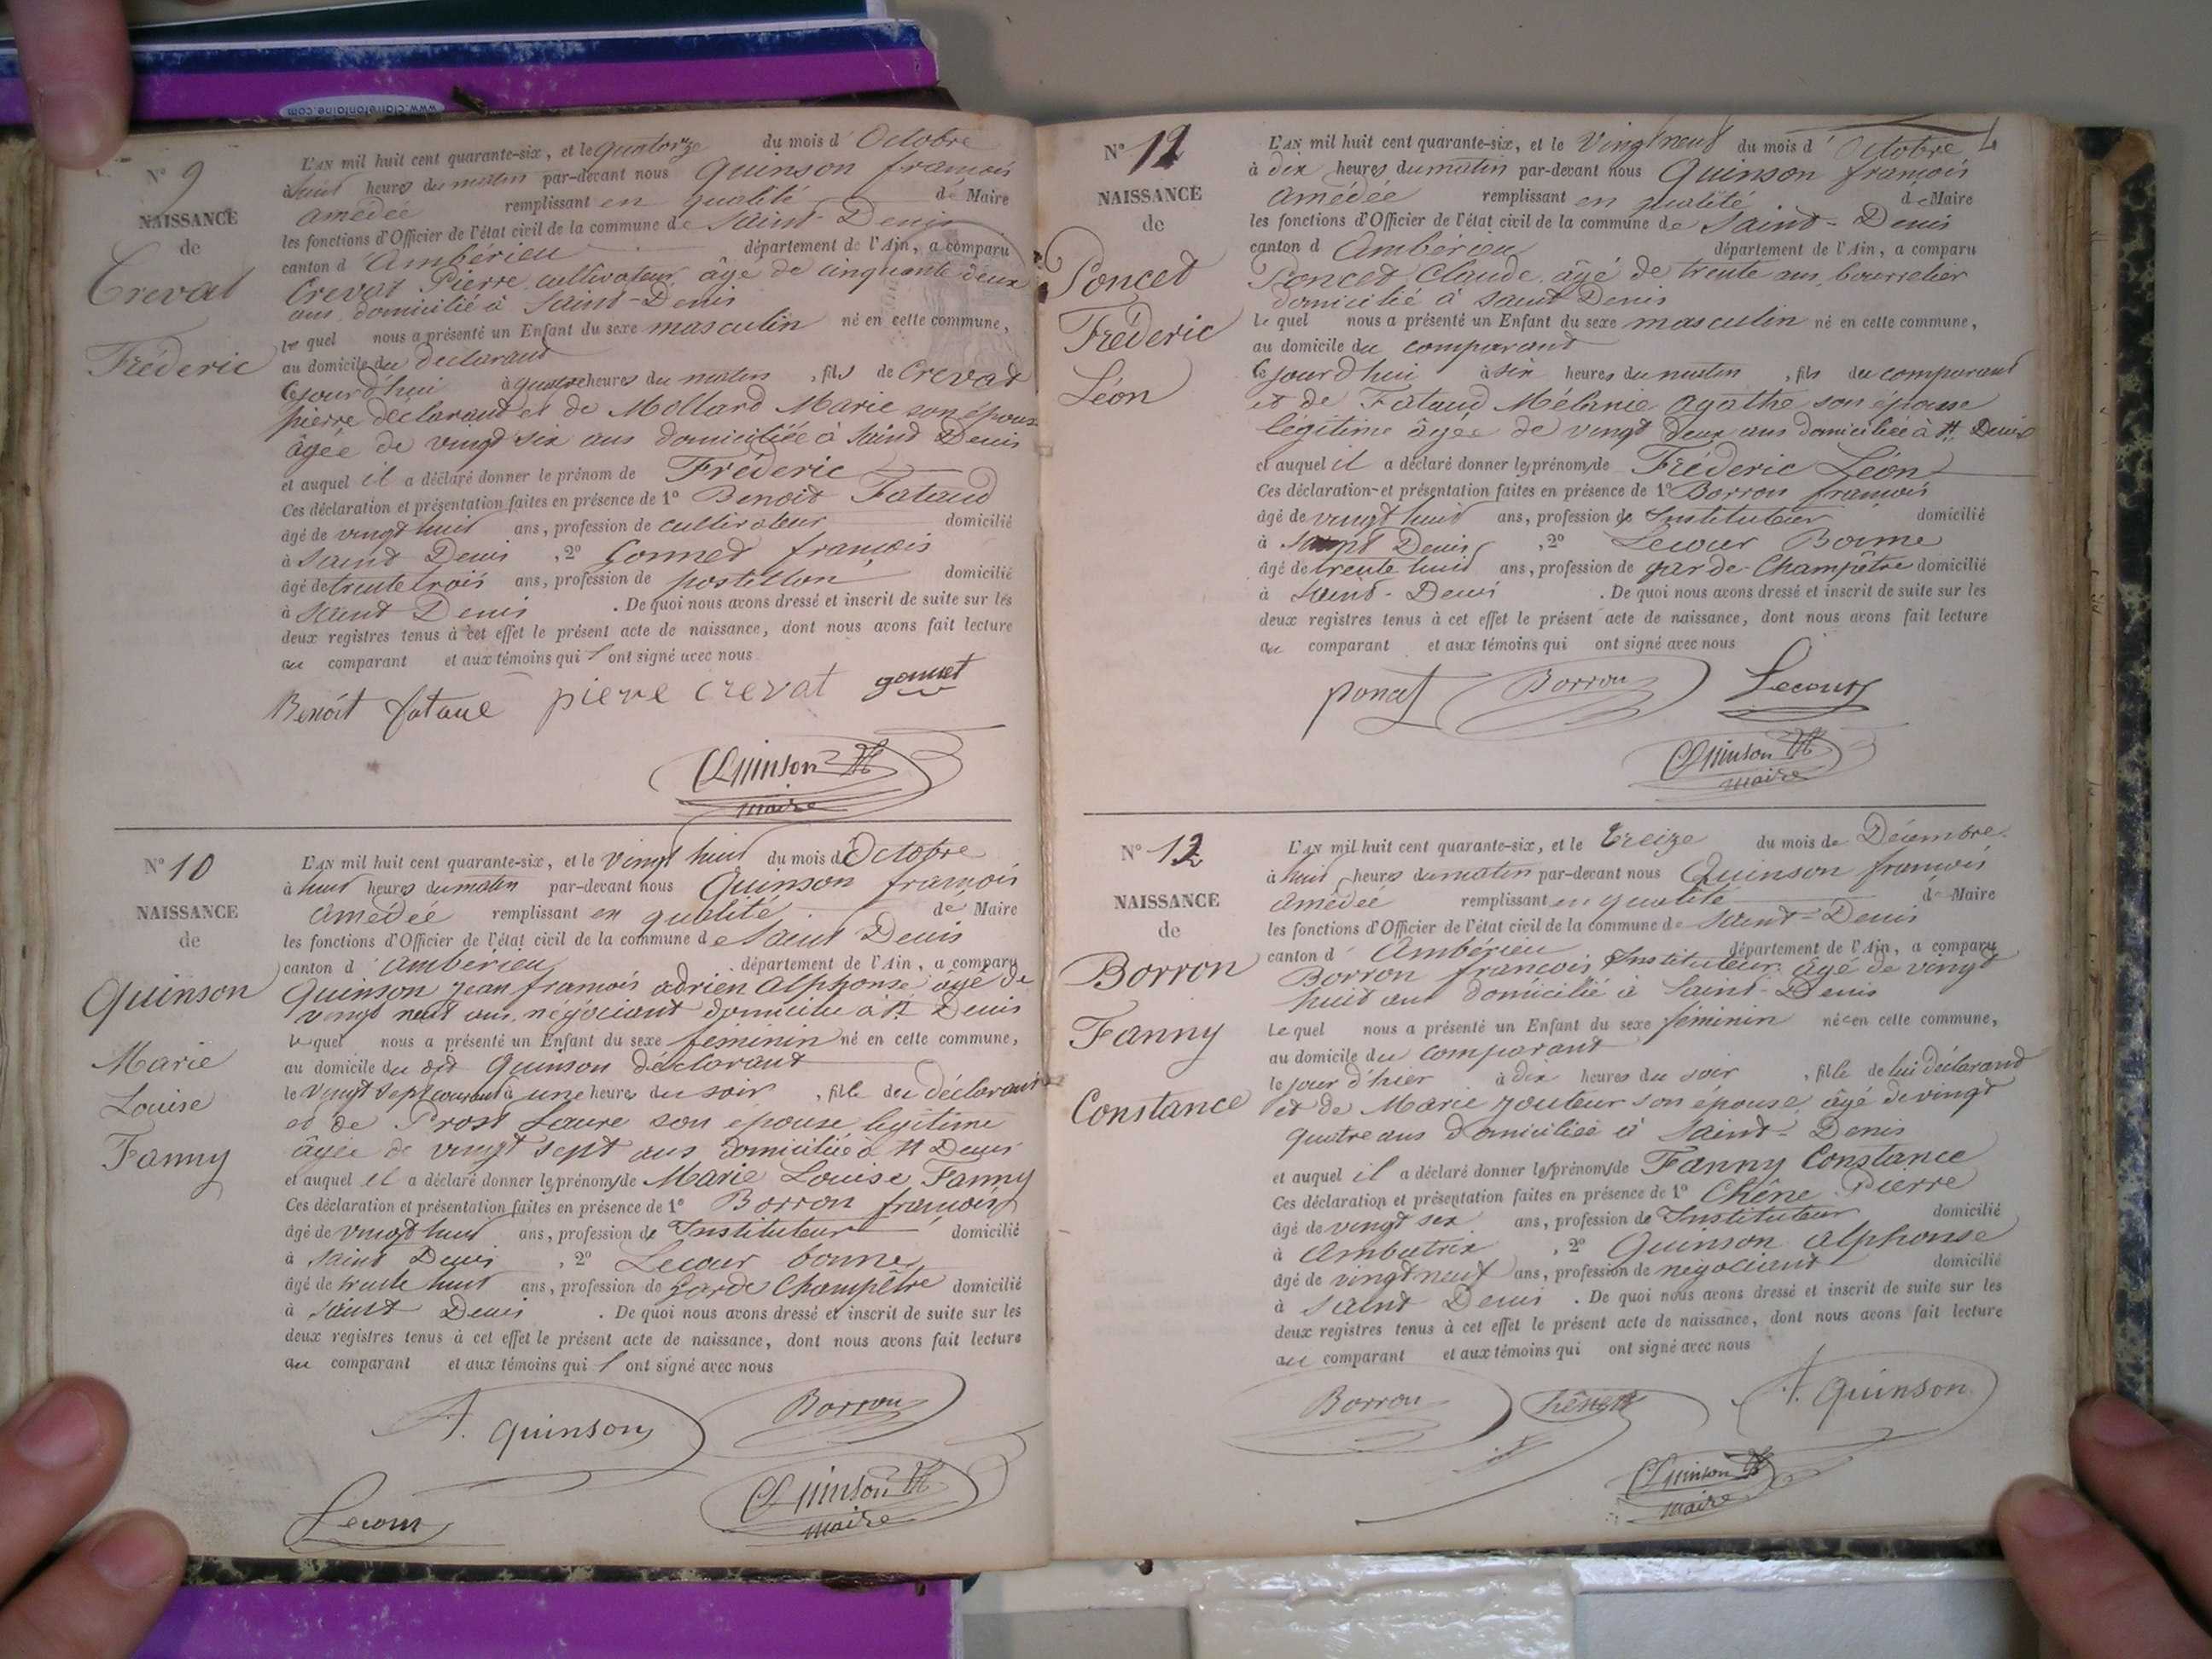 www.clairefontaine.com
N° 9
NAISSANCE
de
Crevat
Fréderic
L'AN mil huit cent quarante-six, et le quatorze du mois d'Octobre
à huit heures du matin par-devant nous Quinson françois
amédée remplissant en qualité de Maire
les fonctions d'Officier de l'état civil de la commune de Saint-Denis
canton d'Ambérieu département de l'Ain, a comparu
Crevat Pierre cultivateur, âgé de cinquante deux
ans domicilié à Saint-Denis
le quel nous a présenté un Enfant du sexe masculin né en cette commune,
au domicile du declarant
Cejourd'hui à quatre heures du matin, fils de Crevat
pierre déclarant et de Mollard Marie son épouse
âgée de vingt six ans domiciliée à Saint Denis
et auquel il a déclaré donner le prénom de Fréderic
Ces déclaration et présentation faites en présence de 1° Benoit Fataud
âgé de vingt huit ans, profession de cultivateur domicilié
à Saint Denis, 2° Gonnet françois
âgé de trente trois ans, profession de postillon domicilié
à Saint Denis. De quoi nous avons dressé et inscrit de suite sur les
deux registres tenus à cet effet le présent acte de naissance, dont nous avons fait lecture
au comparant et aux témoins qui l'ont signé avec nous
Benoit fataud pierre crevat gonnet
Quinson
maire
N° 10
NAISSANCE
de
Quinson
Marie
Louise
Fanny
L'AN mil huit cent quarante-six, et le vingt huit du mois d'Octobre
à huit heures du matin par-devant nous Quinson françois
Amédée remplissant en qualité de Maire
les fonctions d'Officier de l'état civil de la commune de Saint Denis
canton d'ambérieu département de l'Ain, a comparu
Quinson jean françois adrien Alphonse âgé de
vingt neuf ans, négociant domicilié à St Denis
le quel nous a présenté un Enfant du sexe féminin né en cette commune,
au domicile du dit Quinson déclarant
le vingt sept courant à une heures du soir, fille du déclarant
et de Prost Laure son épouse légitime
âgée de vingt sept ans domiciliée à St Denis
et auquel il a déclaré donner les prénoms de Marie Louise Fanny
Ces déclaration et présentation faites en présence de 1° Borron françois
âgé de vingt huit ans, profession de Instituteur domicilié
à Saint Denis, 2° Lecour bonne
âgé de trente huit ans, profession de Garde Champêtre domicilié
à Saint Denis. De quoi nous avons dressé et inscrit de suite sur les
deux registres tenus à cet effet le présent acte de naissance, dont nous avons fait lecture
au comparant et aux témoins qui l'ont signé avec nous
A. Quinson Borron
Lecour Quinson
maire
N° 11
NAISSANCE
de
Poncet
Fréderic
Léon
L'AN mil huit cent quarante-six, et le Vingt neuf du mois d'Octobre
à dix heures du matin par-devant nous Quinson françois
Amédée remplissant en qualité de Maire
les fonctions d'Officier de l'état civil de la commune de Saint-Denis
canton d'Ambérieu département de l'Ain, a comparu
Poncet Claude âgé de trente ans, bourrelier
domicilié à Saint Denis
Le quel nous a présenté un Enfant du sexe masculin né en cette commune,
au domicile du comparant
Cejourd'hui à six heures du matin, fils du comparant
et de Fataud Mélanie Agathe son épouse
légitime âgée de vingt deux ans domiciliée à St Denis
et auquel il a déclaré donner les prénoms de Fréderic Léon
Ces déclaration et présentation faites en présence de 1° Borron françois
âgé de vingt huit ans, profession de Instituteur domicilié
à Saint Denis, 2° Lecour Bonne
âgé de trente huit ans, profession de garde-Champêtre domicilié
à Saint-Denis. De quoi nous avons dressé et inscrit de suite sur les
deux registres tenus à cet effet le présent acte de naissance, dont nous avons fait lecture
au comparant et aux témoins qui ont signé avec nous
poncet Borron Lecour
Quinson
maire
N° 12
NAISSANCE
de
Borron
Fanny
Constance
L'AN mil huit cent quarante-six, et le treize du mois de Décembre
à huit heures du matin par-devant nous Quinson françois
Amédée remplissant en qualité de Maire
les fonctions d'Officier de l'état civil de la commune de Saint-Denis
canton d'Ambérieu département de l'Ain, a comparu
Borron francois Instituteur âgé de vingt
huit ans domicilié à Saint-Denis
Le quel nous a présenté un Enfant du sexe féminin née en cette commune,
au domicile du comparant
le jour d'hier à dix heures du soir, fille de lui déclarant
et de Marie Jouteur son épouse âgé de vingt
quatre ans domiciliée à Saint-Denis
et auquel il a déclaré donner les prénoms de Fanny Constance
Ces déclaration et présentation faites en présence de 1° Chêne Pierre
âgé de vingt six ans, profession de Instituteur domicilié
à Ambutrix, 2° Quinson Alphonse
âgé de vingt neuf ans, profession de négociant domicilié
à Saint Denis. De quoi nous avons dressé et inscrit de suite sur les
deux registres tenus à cet effet le présent acte de naissance, dont nous avons fait lecture
au comparant et aux témoins qui ont signé avec nous
Borron Chêne A. Quinson
Quinson
maire